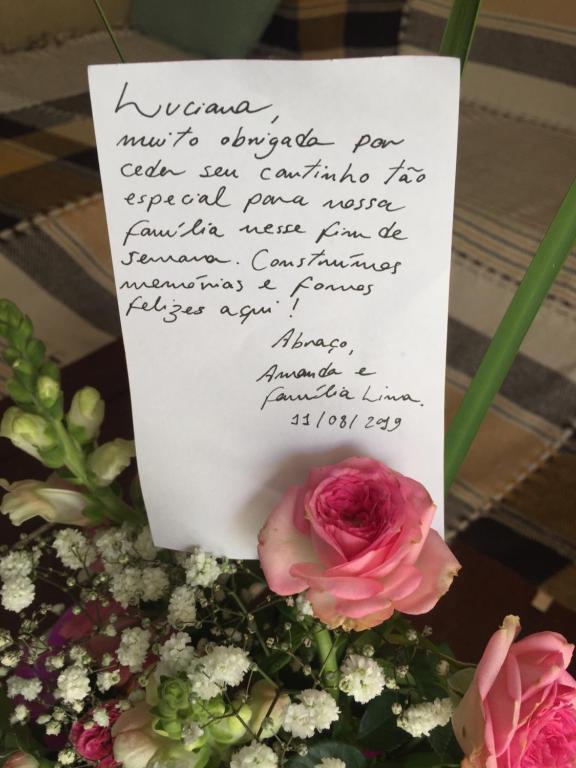 Luciana,
muito obrigada por
ceder seu cantinho tão
especial para nossa
família nesse fim de
semana. Construímos
memórias e fomos
felizes aqui!
Abraço,
Amanda e
família Lima.
11/08/2019